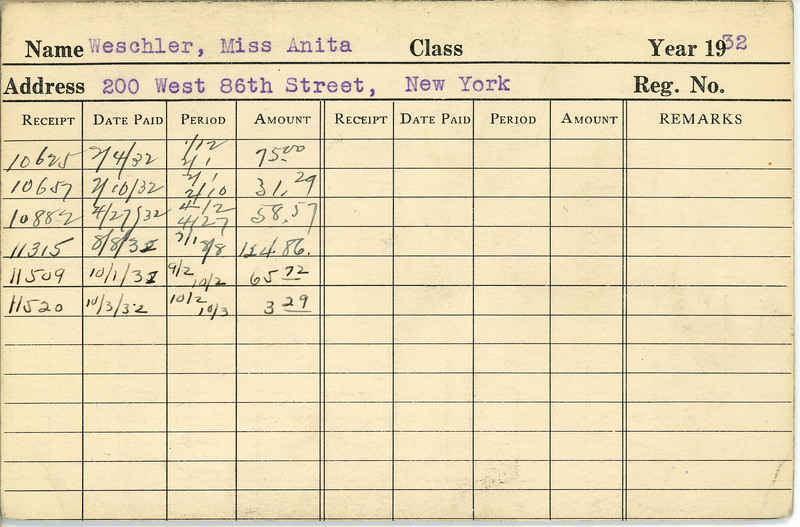 Name Weschler, Miss Anita Class Year 1932
Address 200 West 86th Street, New York Reg. No.
RECEIPT DATE PAID PERIOD AMOUNT RECEIPT DATE PAID PERIOD AMOUNT REMARKS
10625 2/4/32 1/12 2/1 75.00
10657 2/10/32 2/1 2/10 31.29
10882 4/27/32 4/12 4/27 58.57
11315 8/8/32 7/1 8/8 124.86.
11509 10/1/32 9/2 10/2 65 72
11520 10/3/32 10/2 10/3 3 29